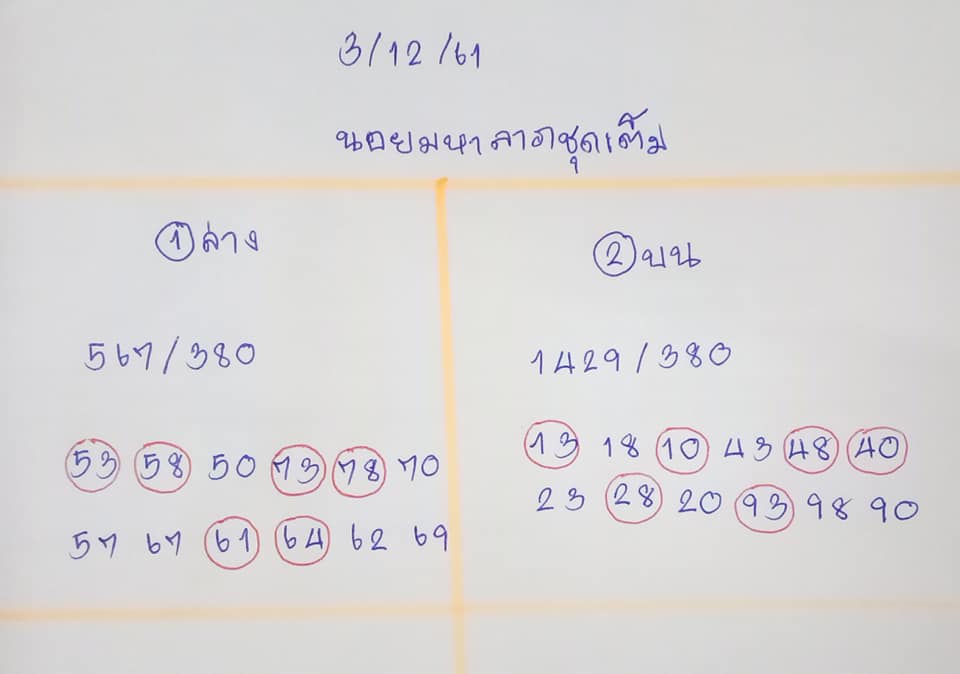 3/12/61
นอยมหาลาภชุดเต็ม
1 ล่าง
567/380
53 58 50 73 78 70
57 67 61 64 62 69
2 บน
1429/380
13 18 10 43 48 40
23 28 20 93 98 90